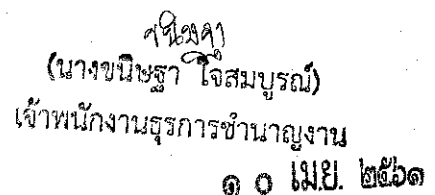 (นางขนิษฐา ใจสมบูรณ์)
เจ้าพนักงานธุรการชำนาญงาน
๑ ๐ เม.ย. ๒๕๖๑